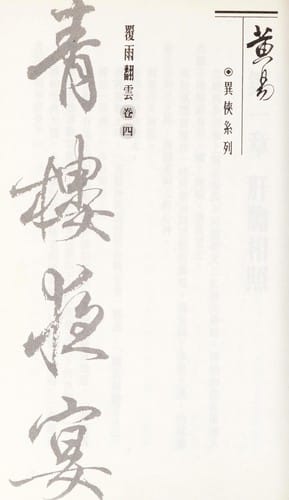 黃易
◉異俠系列
覆雨翻雲卷四
青樓夜宴